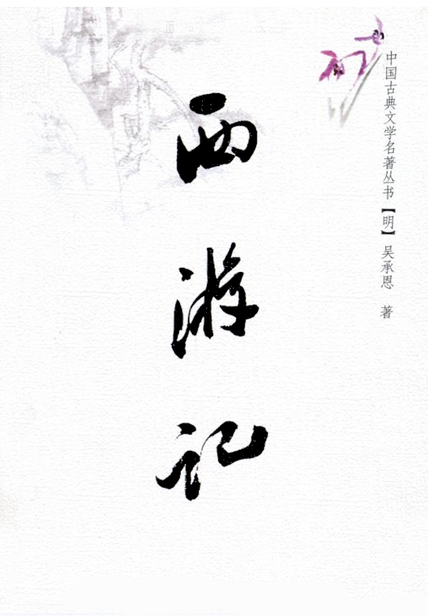 中国古典文学名著丛书【明】吴承恩 著
西游记